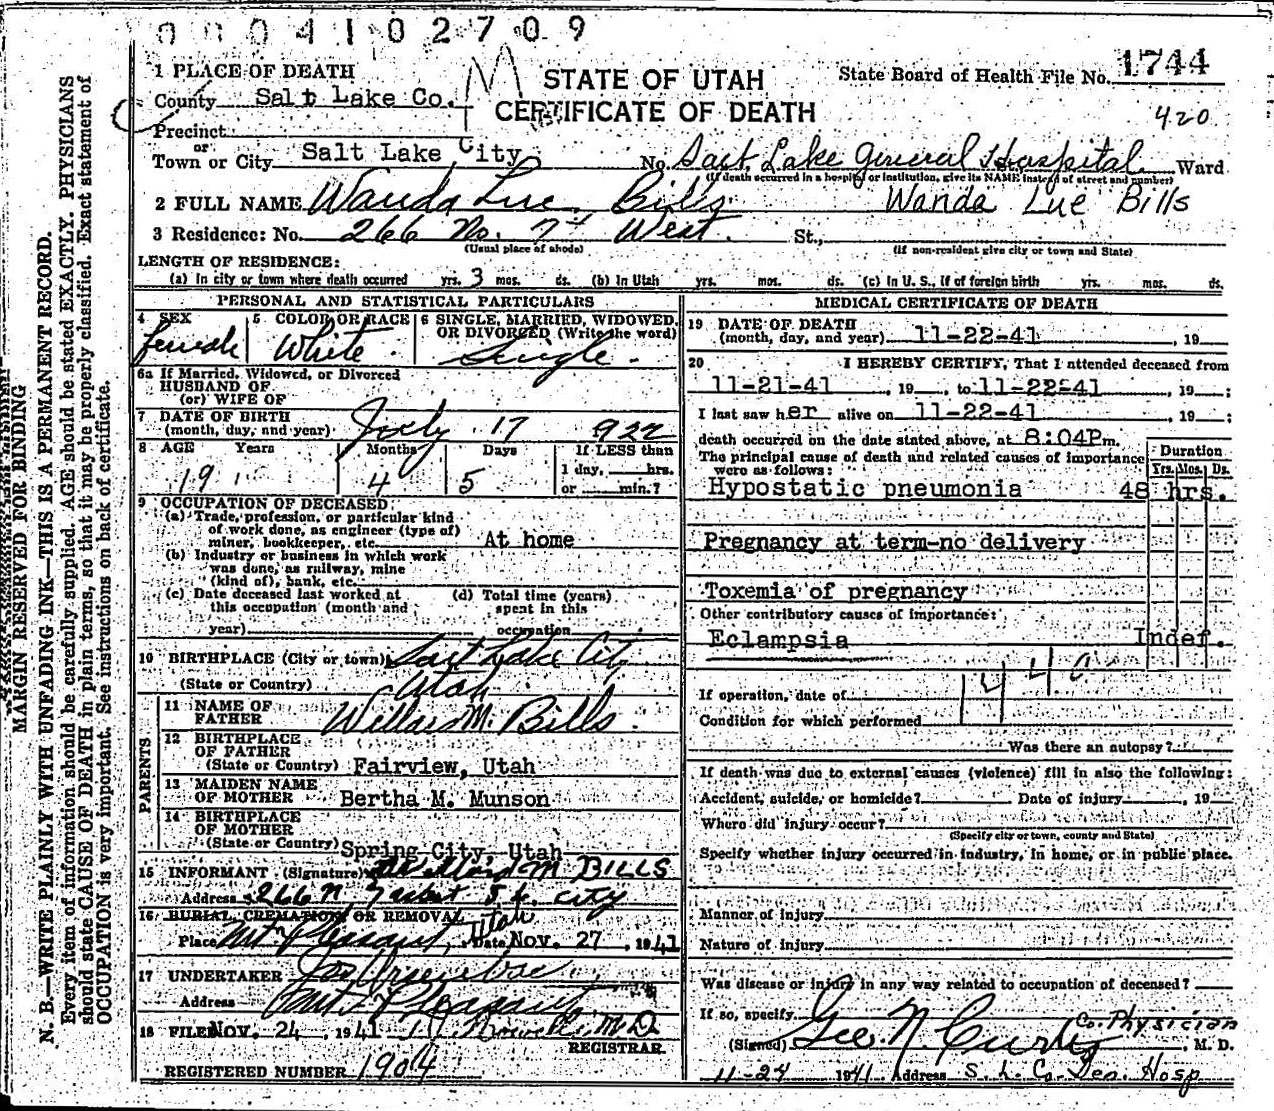 0004102709
1 PLACE OF DEATH
STATE OF UTAH
CERTIFICATE OF DEATH
State Board of Health File No. 1744
420
County Salt Lake Co.
Precinct
or
Town or City Salt Lake City No. Salt Lake General Hospital Ward
(If death occurred in a hospital or institution, give its NAME instead of street and number)
2 FULL NAME Wanda Lue Bills Wanda Lue Bills
3 Residence: No. 266 No. 7th West. St.,
(Usual place of abode) (If non-resident give city or town and State)
LENGTH OF RESIDENCE:
(a) In city or town where death occurred yrs. 3 mos. ds. (b) In Utah yrs. mos. ds. (c) In U. S., if of foreign birth yrs. mos. ds.
PERSONAL AND STATISTICAL PARTICULARS
4 SEX female
5 COLOR OR RACE White
6 SINGLE, MARRIED, WIDOWED, OR DIVORCED (Write the word) Single
6a If Married, Widowed, or Divorced
HUSBAND OF
(or) WIFE OF
7 DATE OF BIRTH
(month, day, and year) July 17 922
8 AGE Years Months Days If LESS than
19 4 5 1 day, hrs.
or min.?
9 OCCUPATION OF DECEASED:
(a) Trade, profession, or particular kind
of work done, as engineer (type of)
miner, bookkeeper, etc. At home
(b) Industry or business in which work
was done, as railway, mine
(kind of), bank, etc.
(c) Date deceased last worked at
this occupation (month and
year)
(d) Total time (years)
spent in this
occupation
10 BIRTHPLACE (City or town) Salt Lake City
(State or Country) Utah
PARENTS
11 NAME OF
FATHER Willard M. Bills
12 BIRTHPLACE
OF FATHER
(State or Country) Fairview, Utah
13 MAIDEN NAME
OF MOTHER Bertha M. Munson
14 BIRTHPLACE
OF MOTHER
(State or Country) Spring City, Utah
15 INFORMANT (Signature) Willard M BILLS
Address 266 N 7 West S.L. City
16 BURIAL, CREMATION, OR REMOVAL Utah
Place Mt. Pleasant, Date Nov. 27, 1941
17 UNDERTAKER
Address Mt. Pleasant
18 FILED Nov. 24, 1941 M.D.
REGISTRAR
REGISTERED NUMBER 1904
MEDICAL CERTIFICATE OF DEATH
19 DATE OF DEATH
(month, day, and year) 11-22-41, 19
20 I HEREBY CERTIFY, That I attended deceased from
11-21-41, 19, to 11-22-41, 19 ;
I last saw her alive on 11-22-41, 19 ;
death occurred on the date stated above, at 8:04P m.
The principal cause of death and related causes of importance
were as follows:
Duration
Yrs. Mos. Ds.
Hypostatic pneumonia 48 hrs.
Pregnancy at term-no delivery
Toxemia of pregnancy
Other contributory causes of importance:
Eclampsia Indef.
If operation, date of
Condition for which performed
Was there an autopsy?
If death was due to external causes (violence) fill in also the following:
Accident, suicide, or homicide? Date of injury , 19
Where did injury occur?
(Specify city or town, county and State)
Specify whether injury occurred in industry, in home, or in public place.
Manner of injury
Nature of injury
Was disease or injury in any way related to occupation of deceased?
If so, specify
Co. Physician
(Signed) Geo. N. Curtis, M. D.
11-24 1941 Address S. L. Co. Gen. Hosp
MARGIN RESERVED FOR BINDING
N. B.—WRITE PLAINLY WITH UNFADING INK—THIS IS A PERMANENT RECORD.
Every item of information should be carefully supplied. AGE should be stated EXACTLY. PHYSICIANS
should state CAUSE OF DEATH in plain terms, so that it may be properly classified. Exact statement of
OCCUPATION is very important. See instructions on back of certificate.